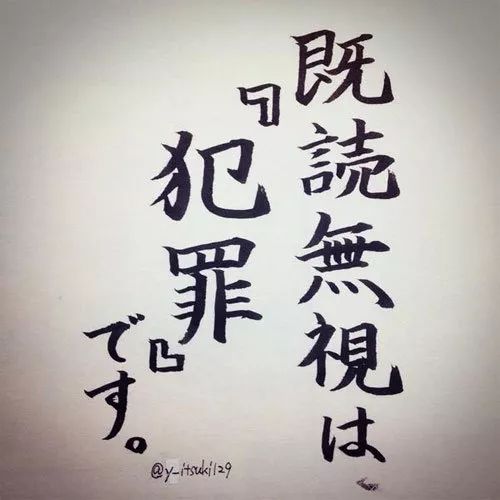 既読無視は
『犯罪』
です。
@y_itsuki129